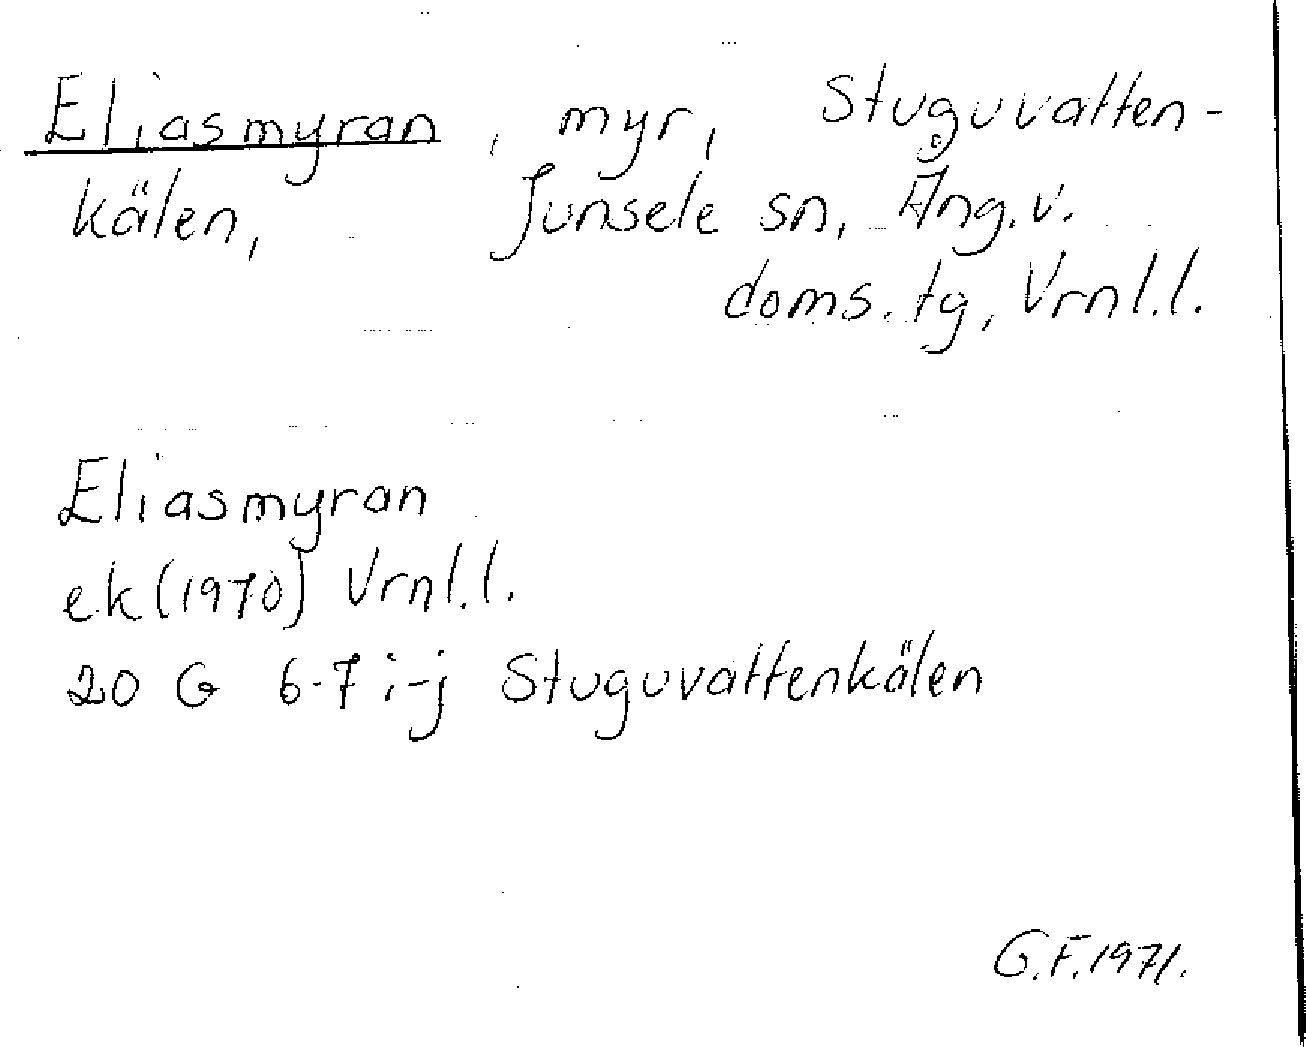 Eliasmyran, myr, Stuguvatten-
kälen, Junsele sn, Ång.v.
doms.tg, Vrnl.l.
Eliasmyran
ek(1970) Vrnl.l.
20 G 6-7 i-j Stuguvattenkälen
G.F.1971.